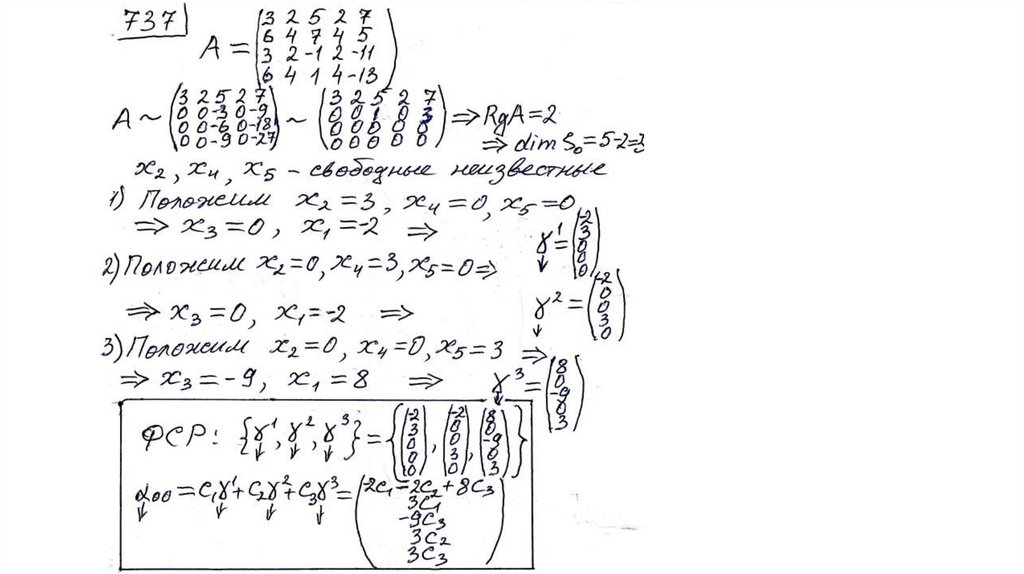 737
A = (3 2 5 2 7
6 4 7 4 5
3 2 -1 2 -11
6 4 1 4 -13)
A ~ (3 2 5 2 7
0 0 -3 0 -9
0 0 -6 0 -18
0 0 -9 0 -27) ~ (3 2 5 2 7
0 0 1 0 3
0 0 0 0 0
0 0 0 0 0) ⇒ RgA=2
⇒ dim S₀=5-2=3
x₂, x₄, x₅ – свободные неизвестные
1) Положим x₂=3, x₄=0, x₅=0
⇒ x₃=0, x₁=-2 ⇒ γ¹=(-2 3 0 0 0)
2) Положим x₂=0, x₄=3, x₅=0 ⇒
⇒ x₃=0, x₁=-2 ⇒ γ²=(-2 0 0 3 0)
3) Положим x₂=0, x₄=0, x₅=3 ⇒
⇒ x₃=-9, x₁=8 ⇒ γ³=(8 0 -9 0 3)
ФСР: {γ¹, γ², γ³} = {(-2 3 0 0 0), (-2 0 0 3 0), (8 0 -9 0 3)}
αоо = C₁γ¹+C₂γ²+C₃γ³ = (-2C₁-2C₂+8C₃
3C₁
-9C₃
3C₂
3C₃)